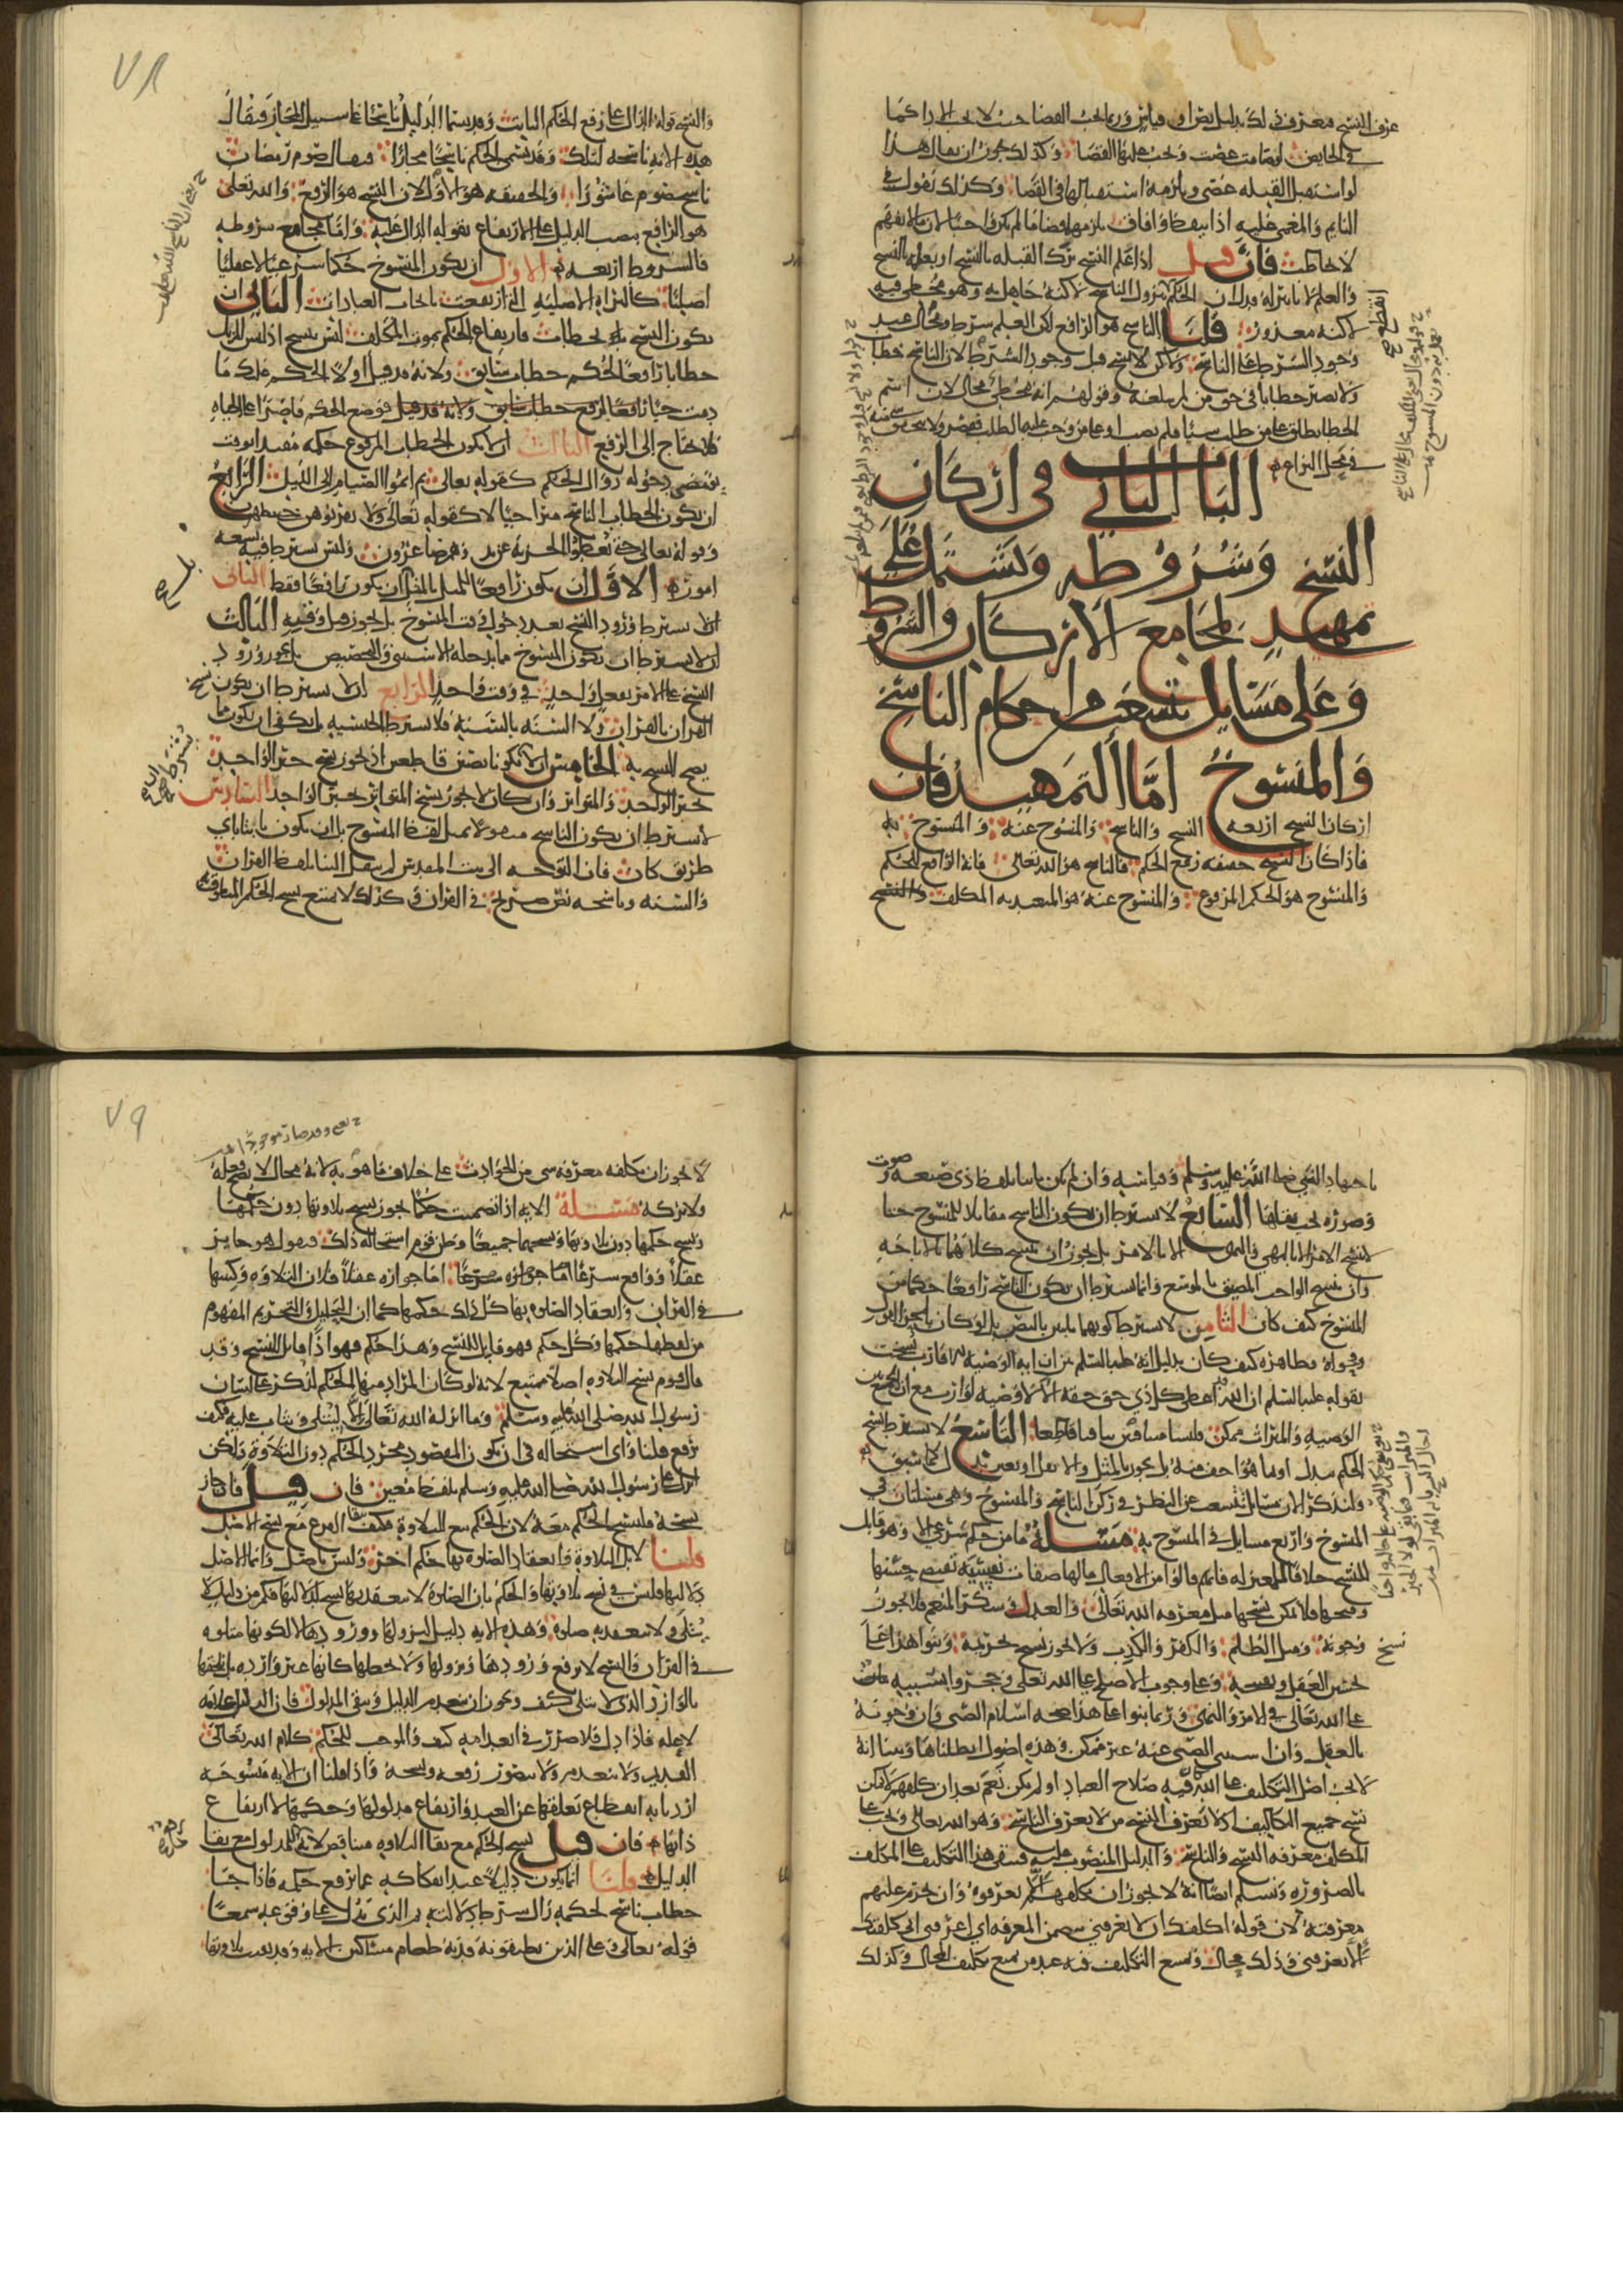 عرف النسخ معرف في لك بدليل نص او قياس وربما يجب القضا حيث لا يجب الادا كما
في الحايض لو صامت عصت ويجب عليها القضا وكذلك يجوز ان يقال هذا
لو استقبل القبله عصى ويلزمه استقبالها في القضا وكذلك نقول في
النايم والمغمى عليه اذا تيقظ وافاق يلزمهما قضا ما لم يكن واجبا لان من لا يفهم
لا يخاطب فان قيل اذا علم النسخ ترك القبله بالنسخ او بعلمه بالنسخ
والعلم لا تاثير له فدل ان الحكم بنزول الناسخ لكنه جاهل به وهو مخطي فيه
لكنه معذور قلنا الناسخ هو الرافع لكن العلم شرط ومحال عند
وجود الشرط على الناسخ ولكن لا نسخ قبل وجود الشرط لان الناسخ خطاب
ولا يصير خطابا في حق من لم يبلغه وقولهم انه مخطي محال لان اسم
الخطا يطلق على من طلب شيا فلم يصب او على من وجب عليه الطلب فقصر ولا يتحقق شي منه
في محل النزاع
الباب الثاني في اركان
النسخ وشروطه ويشتمل على
تمهيد لمجامع الاركان والشروط
وعلى مسايل تتشعب من احكام الناسخ
والمنسوخ اما التمهيد فان
اركان النسخ اربعه النسخ والناسخ والمنسوخ عنه والمنسوخ به
فاذا كان النسخ حقيقته رفع الحكم فالناسخ هو الله تعالى فانه الرافع للحكم
والمنسوخ هو الحكم المرفوع والمنسوخ عنه هو المتعبد به المكلف والنسخ
٧٨
والنسخ قوله الدال على رفع الحكم الثابت وقد يسمى الدليل ناسخا على سبيل المجاز فيقال
هذه الايه ناسخه لتلك وقد يسمى الحكم ناسخا مجازا فيقال صوم رمضان
ناسخ صوم عاشورا والحقيقه هو الاول لان النسخ هو الرفع والله تعالى
هو الرافع بنصب الدليل على الارتفاع بقوله الدال عليه واما مجامع شروطه
فالشروط اربعه الاول ان يكون المنسوخ حكما شرعيا لا عقليا
اصليا كالبراه الاصليه التي ارتفعت بايجاب العبادات الثاني ان
يكون النسخ بخطاب فارتفاع الحكم بموت المكلف ليس بنسخ اذ ليس المزيل
خطابا رافعا لحكم خطاب سابق ولانه قد قيل اولا الحكم عليك ما
دمت حيا فوضع الحكم قاصرا على الحياه
فلا يحتاج الى الرفع الثالث ان لا يكون الخطاب المرفوع حكمه مقيدا بوقت
يقتضي دخوله زوال الحكم كقوله تعالى ثم اتموا الصيام الى الليل الرابع
ان يكون الخطاب الناسخ متراخيا لا كقوله تعالى ولا تقربوهن حتى يطهرن
وقوله تعالى حتى يعطوا الجزيه عن يد وهم صاغرون وليس يشترط فيه تسعه
امور الاول ان يكون رافعا للمثل بالمثل بل ان يكون رافعا فقط الثاني
ان لا يشترط ورود النسخ بعد دخول وقت المنسوخ بل يجوز قبل وقته الثالث
ان لا يشترط ان يكون المنسوخ ما يدخله الاستثنى والتخصيص بل يجوز ورود
النسخ على الامر بفعل واحد في وقت واحد الرابع ان لا يشترط ان يكون نسخ
القران بالقران ولا السنه بالسنه فلا تشترط الجنسيه بل يكفي ان يكون ما
يصح النسخ به الخامس ان لا يكونا نصين قاطعين اذ يجوز نسخ خبر الواحد
بخبر الواحد وبالمتواتر وان كان لا يجوز نسخ المتواتر بخبر الواحد السادس
لا يشترط ان يكون الناسخ منقولا بمثل لفظ المنسوخ بل ان يكون ثابتا باي
طريق كان فان التوجه الى بيت المقدس لم ينقل الينا بلفظ القران
والسنه وناسخه نص صريح في القران وكذلك لا يمتنع نسخ الحكم المنطوق به
باجتهاد النبي صلى الله عليه وسلم وقياسه وان لم يكن ثابتا بلفظ ذي صيغه
وصوره يجب نقلها السابع لا يشترط ان يكون الناسخ مقابلا للمنسوخ حتى
لا ينسخ الامر الا بالنهي ولا النهي الا بالامر بل يجوز ان ينسخ كلاهما بالاباحه
وان ينسخ الواجب المضيق بالموسع وانما يشترط ان يكون الناسخ رافعا حكما من
المنسوخ كيف كان الثامن لا يشترط كونهما ثابتين بالنص بل لو كان بلحن القول
وفحواه وظاهره كيف كان بدليل انه عليه السلم بين ان ايه الوصيه للاقارب نسخت
بقوله عليه السلم ان الله قد اعطى كل ذي حق حقه الا لا وصيه لوارث مع ان الجمع بين
الوصيه والميراث ممكن فليسا متنافيين تنافيا قاطعا التاسع لا يشترط نسخ
الحكم ببدل او بما هو اخف منه بل يجوز بالمثل والاثقل او بغير بدل كما سبق
ولنذكر الان مسايل تتشعب عن النظر في ركن الناسخ والمنسوخ وهي مسالتان في
المنسوخ واربع مسايل في المنسوخ به مسئله ما من حكم شرعي الا وهو قابل
للنسخ خلافا للمعتزله فانهم قالوا من الافعال ما لها صفات نفسيه تقتضي حسنها
وقبحها فلا يمكن نسخها مثل معرفه الله تعالى والعدل وشكر المنعم فلا يجوز
نسخ وجوبه ومثل الظلم والكفر والكذب ولا يجوز نسخ تحريمه وبنوا هذا على
تحسين العقل وتقبيحه وعلى وجوب الاصلح على الله تعالى وحجروا بسببه
على الله تعالى في الامر والنهي وربما بنوا على هذا صحه اسلام الصبي وان وجوبه
بالعقل وان استثنى الصبي عنه غير ممكن وهذه اصول ابطلناها وبينا انه
لا يجب اصل التكليف على الله كان فيه صلاح العباد او لم يكن نعم بعد ان كلفهم لا يمكن
نسخ جميع التكاليف اذ لا يعرف النسخ من لا يعرف الناسخ وهو الله تعالى ويجب على
المكلف معرفه النسخ والناسخ والدليل المنصوب عليه فيبقى هذا التكليف على المكلف
بالضروره ونسلم ايضا انه لا يجوز ان يكلفهم الا يعرفوه وان يحرم عليهم
معرفته لان قوله اكلفك ان لا تعرفني يتضمن المعرفه اي اعرفني اني كلفتك
الا تعرفني وذلك محال ويمتنع التكليف فيه عند من يمنع تكليف المحال وكذلك
٧٩
لا يجوز ان يكلفه معرفه شي من الحوادث على خلاف ما هو به لانه محال لا يصح فعله
ولا تركه مسئله الايه اذا تضمنت حكما يجوز نسخ تلاوتها دون حكمها
ونسخ حكمها دون تلاوتها ونسخهما جميعا وظن قوم استحاله ذلك فنقول هو جايز
عقلا وواقع شرعا اما جوازه عقلا فلان التلاوه وكتبها
في القران وانعقاد الصلوه بها كل ذلك حكمها كما ان التحليل والتحريم المفهوم
من لفظها حكمها وكل حكم فهو قابل للنسخ وهذا حكم فهو اذا قابل للنسخ وقد
قال قوم نسخ التلاوه اصلا ممتنع لانه لو كان المراد منها الحكم لذكر على لسان
رسول الله صلى الله عليه وسلم وما انزله الله تعالى الا ليتلى ويثاب عليه فكيف
يرفع قلنا واي استحاله في ان يكون المقصود مجرد الحكم دون التلاوه ولكن
انزل على رسول الله صلى الله عليه وسلم بلفظ معين فان قيل فان جاز
نسخه فلينسخ الحكم معه لان الحكم تبع للتلاوه فكيف يبقى الفرع مع نسخ الاصل
قلنا لا بل التلاوه وانعقاد الصلوه بها حكم اخر وليس باصل وانما الاصل
دلالتها فليس في نسخ تلاوتها والحكم بان الصلوه لا تنعقد بها نسخ لدلالتها فكم من دليل لا
يتلى ولا تنعقد به صلوه وهذه الايه دليل لنزولها وورودها لا لكونها متلوه
في القران والنسخ لا يرفع ورودها ونزولها ولا يجعلها كانها غير وارده بل يلحقها
بالوارد الذي لا يتلى كيف ويجوز ان ينعدم الدليل ويبقى المدلول فان الدليل علامه
لا عله فاذا دل فلا ضرر في انعدامه كيف والموجب للحكم كلام الله تعالى
القديم ولا ينعدم ولا يتصور رفعه ونسخه فاذا قلنا ان الايه منسوخه
اردنا به انقطاع تعلقها عن العبد وارتفاع مدلولها وحكمها لا ارتفاع
ذاتها فان قيل نسخ الحكم مع بقا التلاوه متناقض لانه رفع للمدلول مع بقا
الدليل قلنا انما يكون دليلا عند انفكاكه عما يرفع حكمه فاذا جا
خطاب ناسخ لحكمه زال شرط دلالته ثم الذي يدل على وقوعه سمعا
قوله تعالى وعلى الذين يطيقونه فديه طعام مسكين الايه وقد بقيت تلاوتها